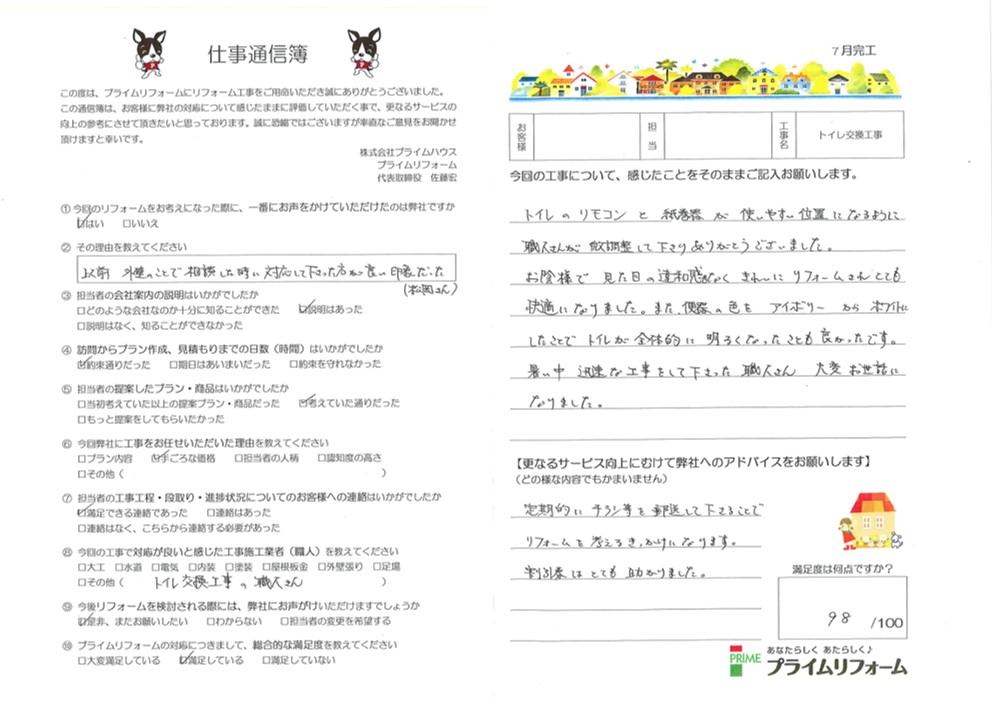 仕事通信簿
この度は、プライムリフォームにリフォーム工事をご用命いただき誠にありがとうございました。
この通信簿は、お客様に弊社の対応について感じたままに評価していただく事で、更なるサービスの
向上の参考にさせて頂きたいと思っております。誠に恐縮ではございますが率直なご意見をお聞かせ
頂けますと幸いです。
株式会社プライムハウス
プライムリフォーム
代表取締役 佐藤宏
① 今回のリフォームをお考えになった際に、一番にお声をかけていただけたのは弊社ですか
☑はい □いいえ
② その理由を教えてください
以前 外壁のことで相談した時に対応して下さった方が良い印象だった
(松岡さん)
③ 担当者の会社案内の説明はいかがでしたか
□どのような会社なのか十分に知ることができた ☑説明はあった
□説明はなく、知ることができなかった
④ 訪問からプラン作成、見積もりまでの日数（時間）はいかがでしたか
☑約束通りだった □期日はあいまいだった □約束を守れなかった
⑤ 担当者の提案したプラン・商品はいかがでしたか
□当初考えていた以上の提案プラン・商品だった ☑考えていた通りだった
□もっと提案をしてもらいたかった
⑥ 今回弊社に工事をお任せいただいた理由を教えてください
□プラン内容 ☑手ごろな価格 □担当者の人柄 □認知度の高さ
□その他（ ）
⑦ 担当者の工事工程・段取り・進捗状況についてのお客様への連絡はいかがでしたか
☑満足できる連絡であった □連絡はあった
□連絡はなく、こちらから連絡する必要があった
⑧ 今回の工事で対応が良いと感じた工事施工業者（職人）を教えてください
□大工 □水道 □電気 □内装 □塗装 □屋根板金 □外壁張り □足場
□その他（ トイレ交換工事の職人さん ）
⑨ 今後リフォームを検討される際には、弊社にお声がけいただけますでしょうか
☑是非、またお願いしたい □わからない □担当者の変更を希望する
⑩ プライムリフォームの対応につきまして、総合的な満足度を教えてください
□大変満足している ☑満足している □満足していない
7月完工
お客様 担当 工事名 トイレ交換工事
今回の工事について、感じたことをそのままご記入お願いします。
トイレのリモコンと紙巻器が使いやすい位置になるように
職人さんが微調整して下さりありがとうございました。
お陰様で見た目の違和感なくきれいにリフォームさんとても
快適になりました。また、便器の色をアイボリーからホワイトに
したことでトイレが全体的に明るくなったことも良かったです。
暑い中 迅速な工事をして下さった職人さん 大変お世話に
なりました。
【更なるサービス向上にむけて弊社へのアドバイスをお願いします】
（どの様な内容でもかまいません）
定期的にチラシ等を郵送して下さることで
リフォームを考えるきっかけになります。
割引券はとても助かりました。
満足度は何点ですか？
98 /100
PRIME
あなたらしく あたらしく♪
プライムリフォーム